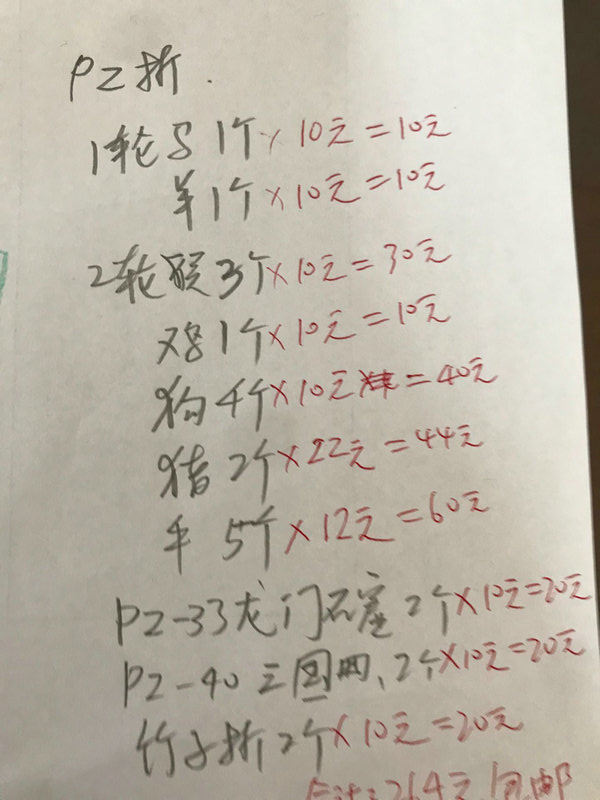 PZ折.
1轮马1个×10元=10元
羊1个×10元=10元
2轮猴3个×10元=30元
鸡1个×10元=10元
狗4个×10元=40元
猪2个×22元=44元
羊 5个×12元=60元
PZ-33龙门石窟2个×10元=20元
PZ-40三国四、2个×10元=20元
竹子折2个×10元=20元
合计:264元包邮